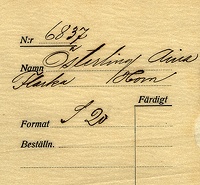 N:r 6837
Namn Österling Aina
Flacka Horn
Färdigt
Format S 20
Beställn.